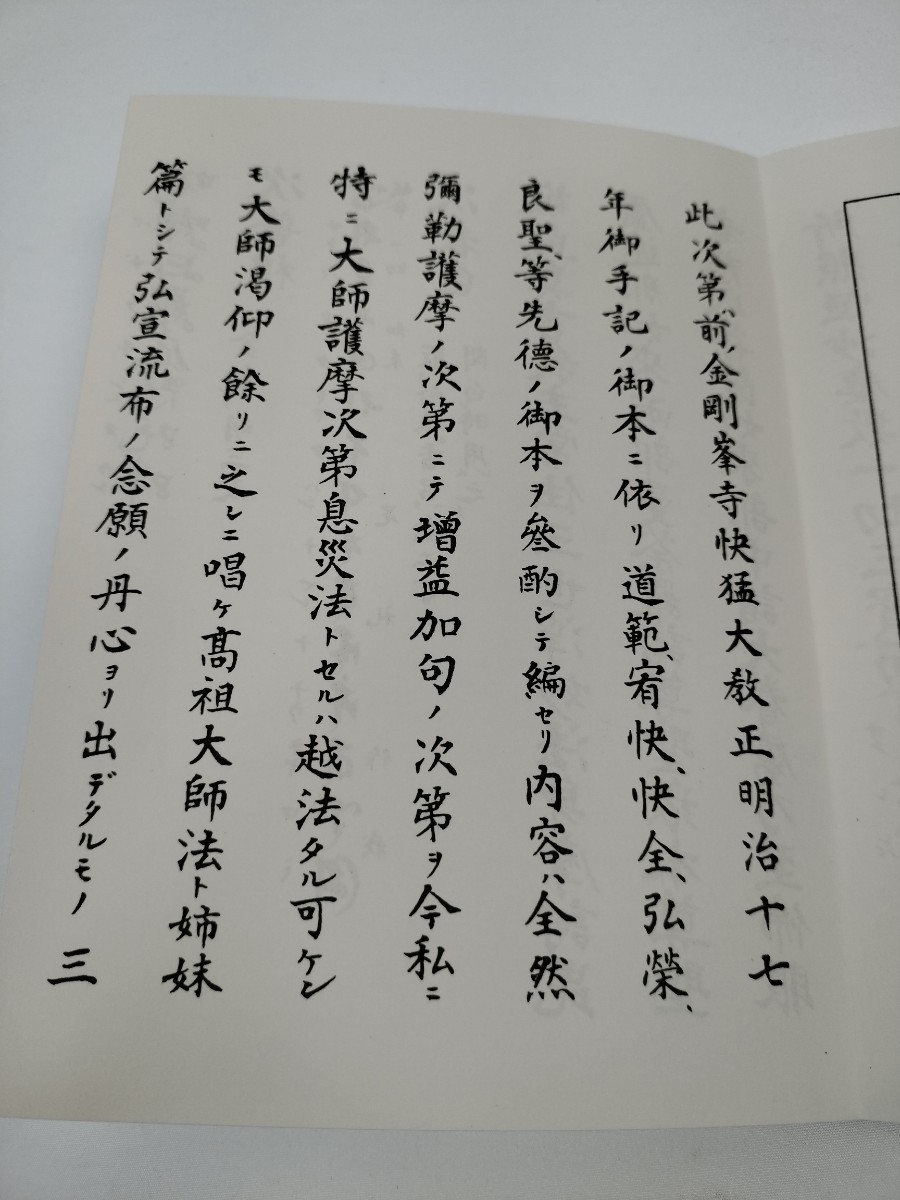 此次第ハ前ノ金剛峯寺快猛大教正明治十七
年御手記ノ御本ニ依リ道範、宥快、快全、弘榮、
良聖、等先德ノ御本ヲ參酌シテ編セリ內容ハ全然
彌勒護摩ノ次第ニテ增益加句ノ次第ヲ今私ニ
特ニ大師護摩次第息災法トセルハ越法タル可ケン
モ大師渇仰ノ餘リニ之レニ唱ケ髙祖大師法ト姉妹
篇トシテ弘宣流布ノ念願ノ丹心ヨリ出デタルモノ三